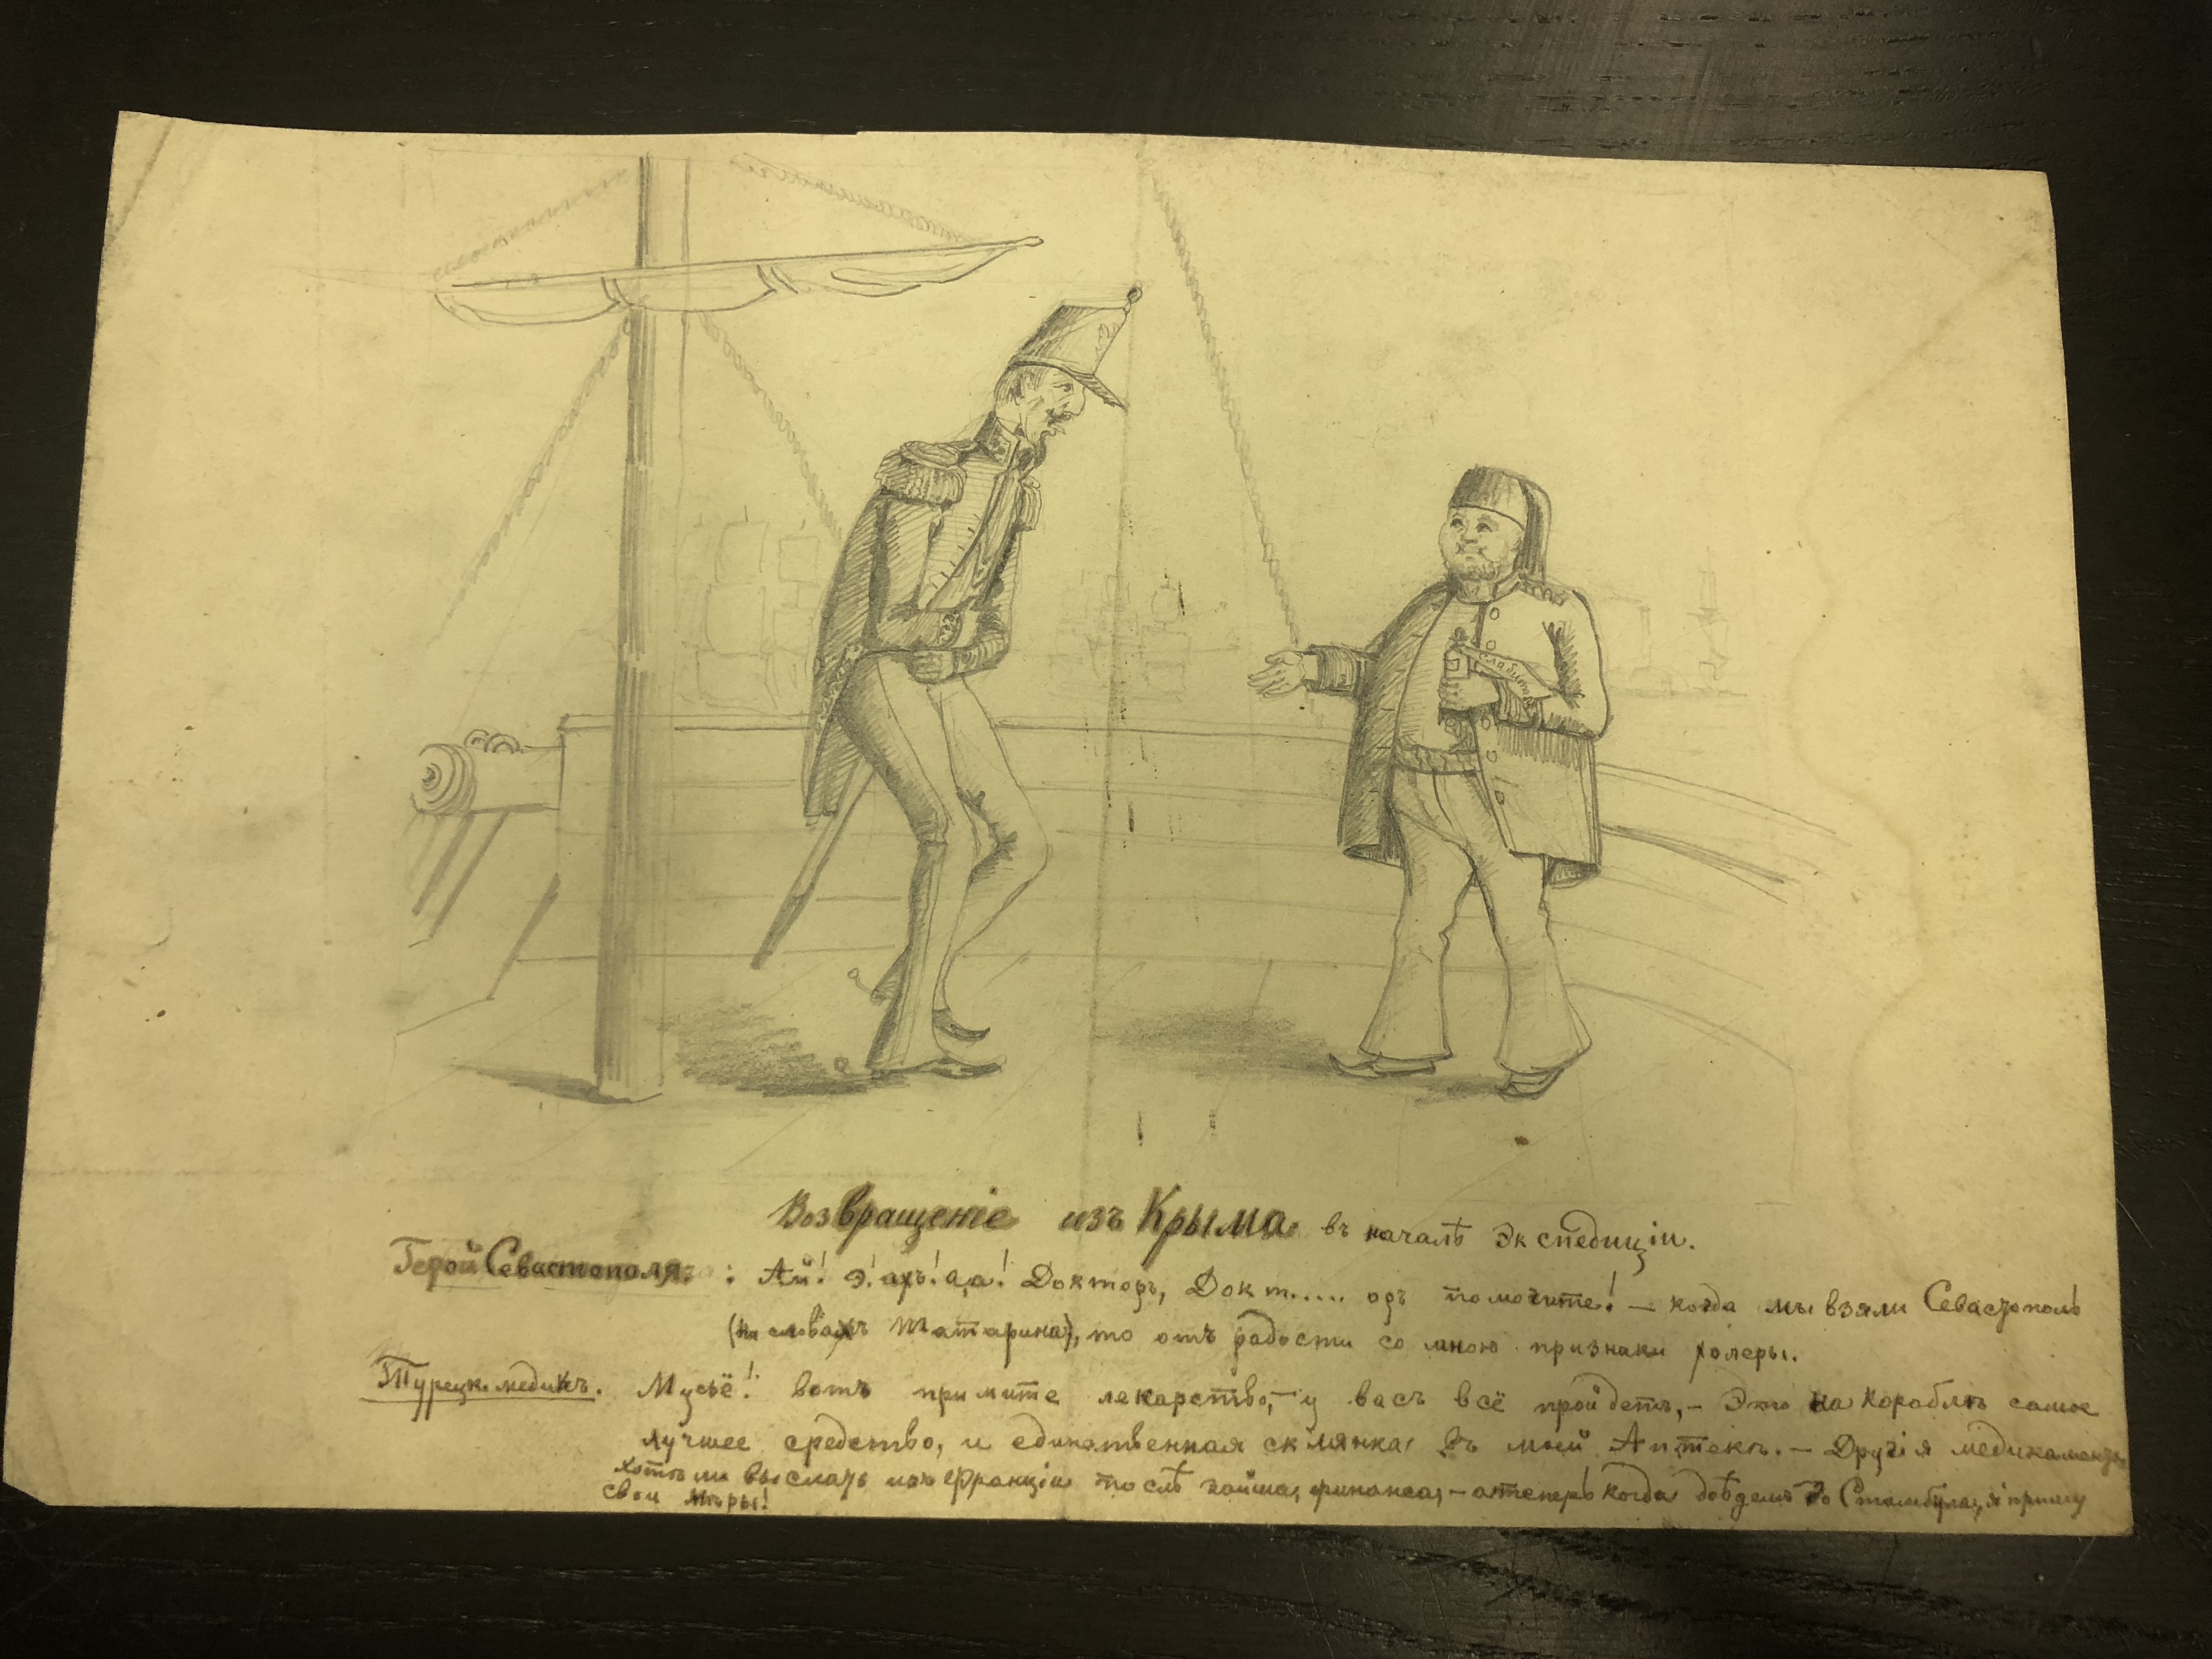 слабител
Возвращеніе изъ Крыма въ началѣ Экспедиціи.
Герой Севастополя : Ай! Э! ахъ! а,а! Докторъ, Докт..... оръ помогите! — когда мы взяли Севастополь
(на словахъ Татарина), то отъ радости со мною признаки холеры.
Турецк. медикъ. Мусьё! вотъ примите лекарство, — у васъ всё пройдетъ, — Это на кораблѣ самое
лучшее средство, и единственная склянка въ моей Аптекѣ. — Другія медикаменты
хотѣли выслать изъ Франціи послѣ займа, финанса, — а теперь когда доѣдемъ до Стамбула, я приму
свои мѣры!